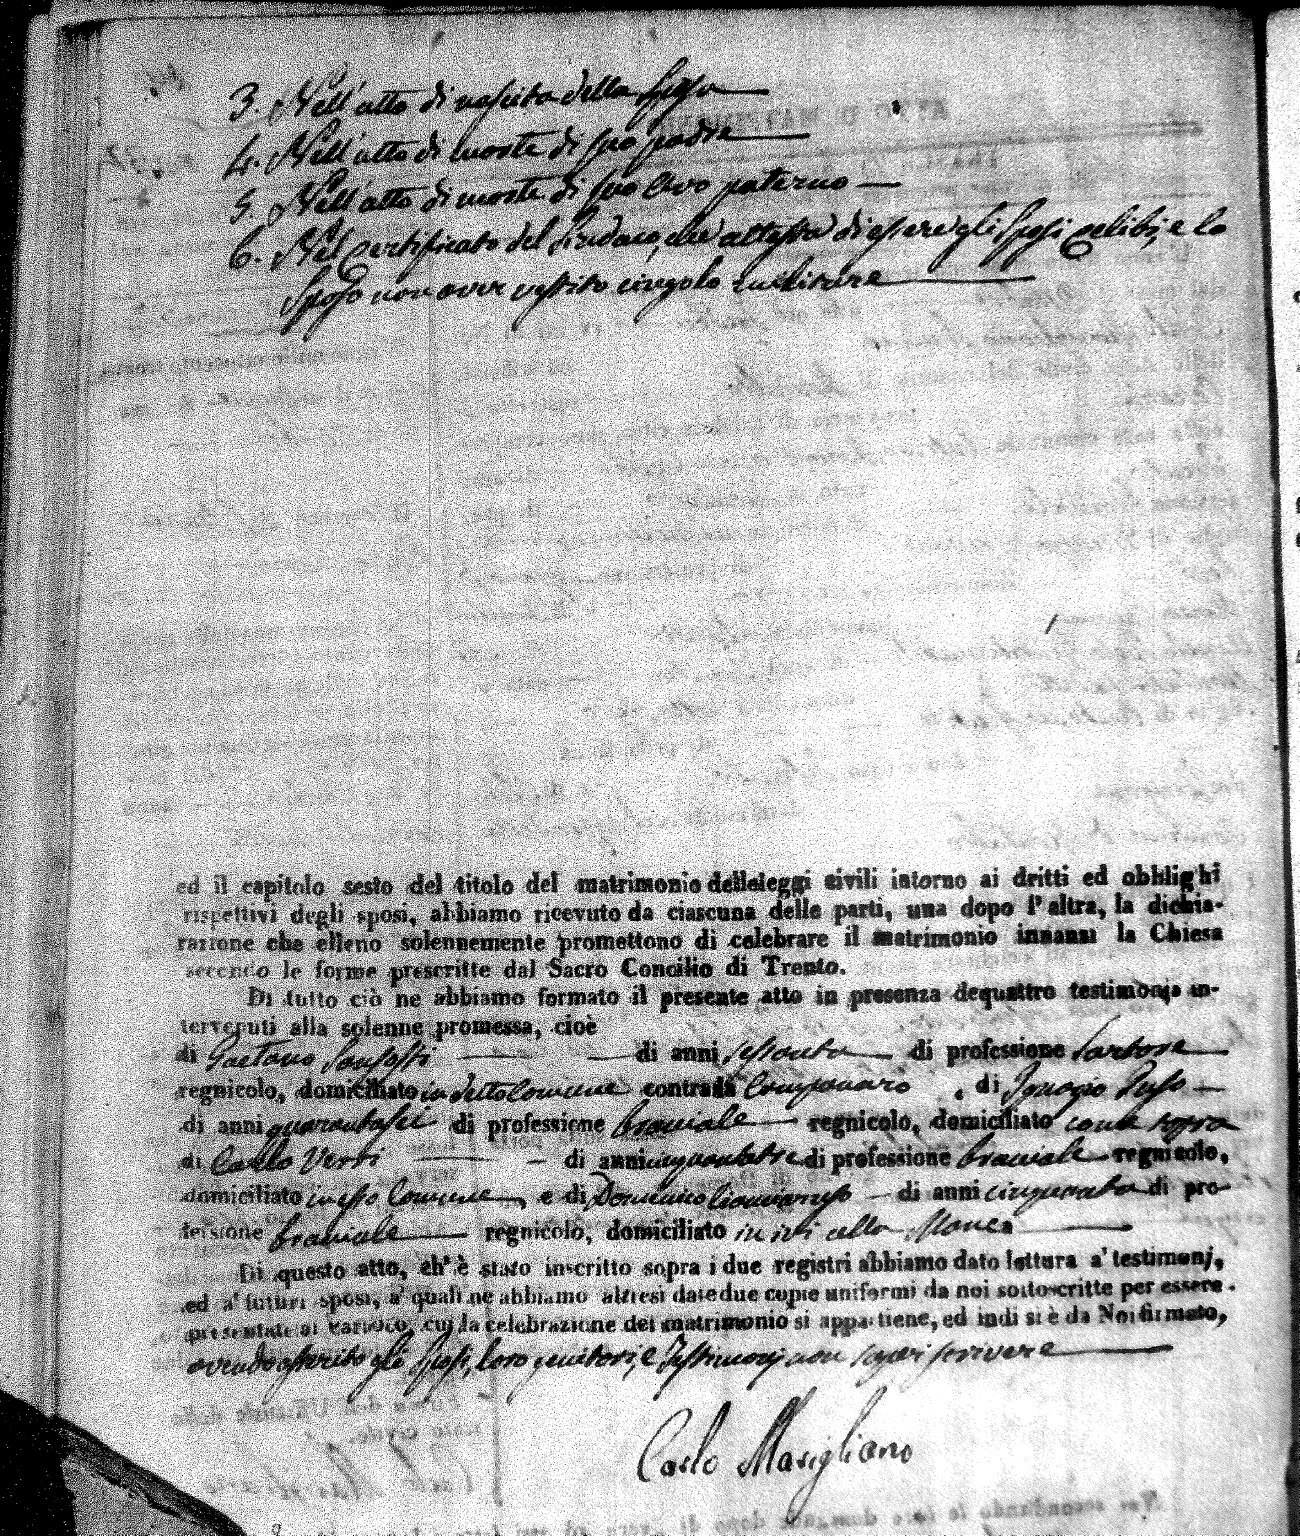 3. Nell'atto di nascita della Sposa
4. Nell'atto di morte di suo padre
5. Nell'atto di morte di suo Avo paterno
6. Nel Certificato del Sindaco, che attesta di essere gli Sposi celibi, e lo
Sposo non aver vestito cingolo militare
ed il capitolo sesto del titolo del matrimonio delleleggi civili intorno ai dritti ed obblighi
rispettivi degli sposi, abbiamo ricevuto da ciascuna delle parti, una dopo l'altra, la dichia-
razione che elleno solennemente promettono di celebrare il matrimonio innanzi la Chiesa
secondo le forme prescritte dal Sacro Concilio di Trento.
Di tutto ciò ne abbiamo formato il presente atto in presenza dequattro testimonj in-
tervenuti alla solenne promessa, cioè
di Gaetano di anni sessanta di professione Sartore
regnicolo, domiciliato in detto Comune contrada Campanaro, di Ignazio
di anni quarantasei di professione bracciale regnicolo, domiciliato come sopra
di Carlo di anni cinquantatre di professione bracciale regnicolo,
domiciliato in esso Comune, e di Domenico di anni cinquanta di pro-
fessione bracciale regnicolo, domiciliato in ivi alla
Di questo atto, ch'è stato inscritto sopra i due registri abbiamo dato lettura a' testimonj,
ed a' futuri sposi, a' quali ne abbiamo altresì datedue copie uniformi da noi sottoscritte per essere
presentate al Parroco, cui la celebrazione del matrimonio si appartiene, ed indi si è da Noi firmato,
avendo asserito gli Sposi, loro genitori, e Testimonj non saper scrivere
Carlo Marigliano